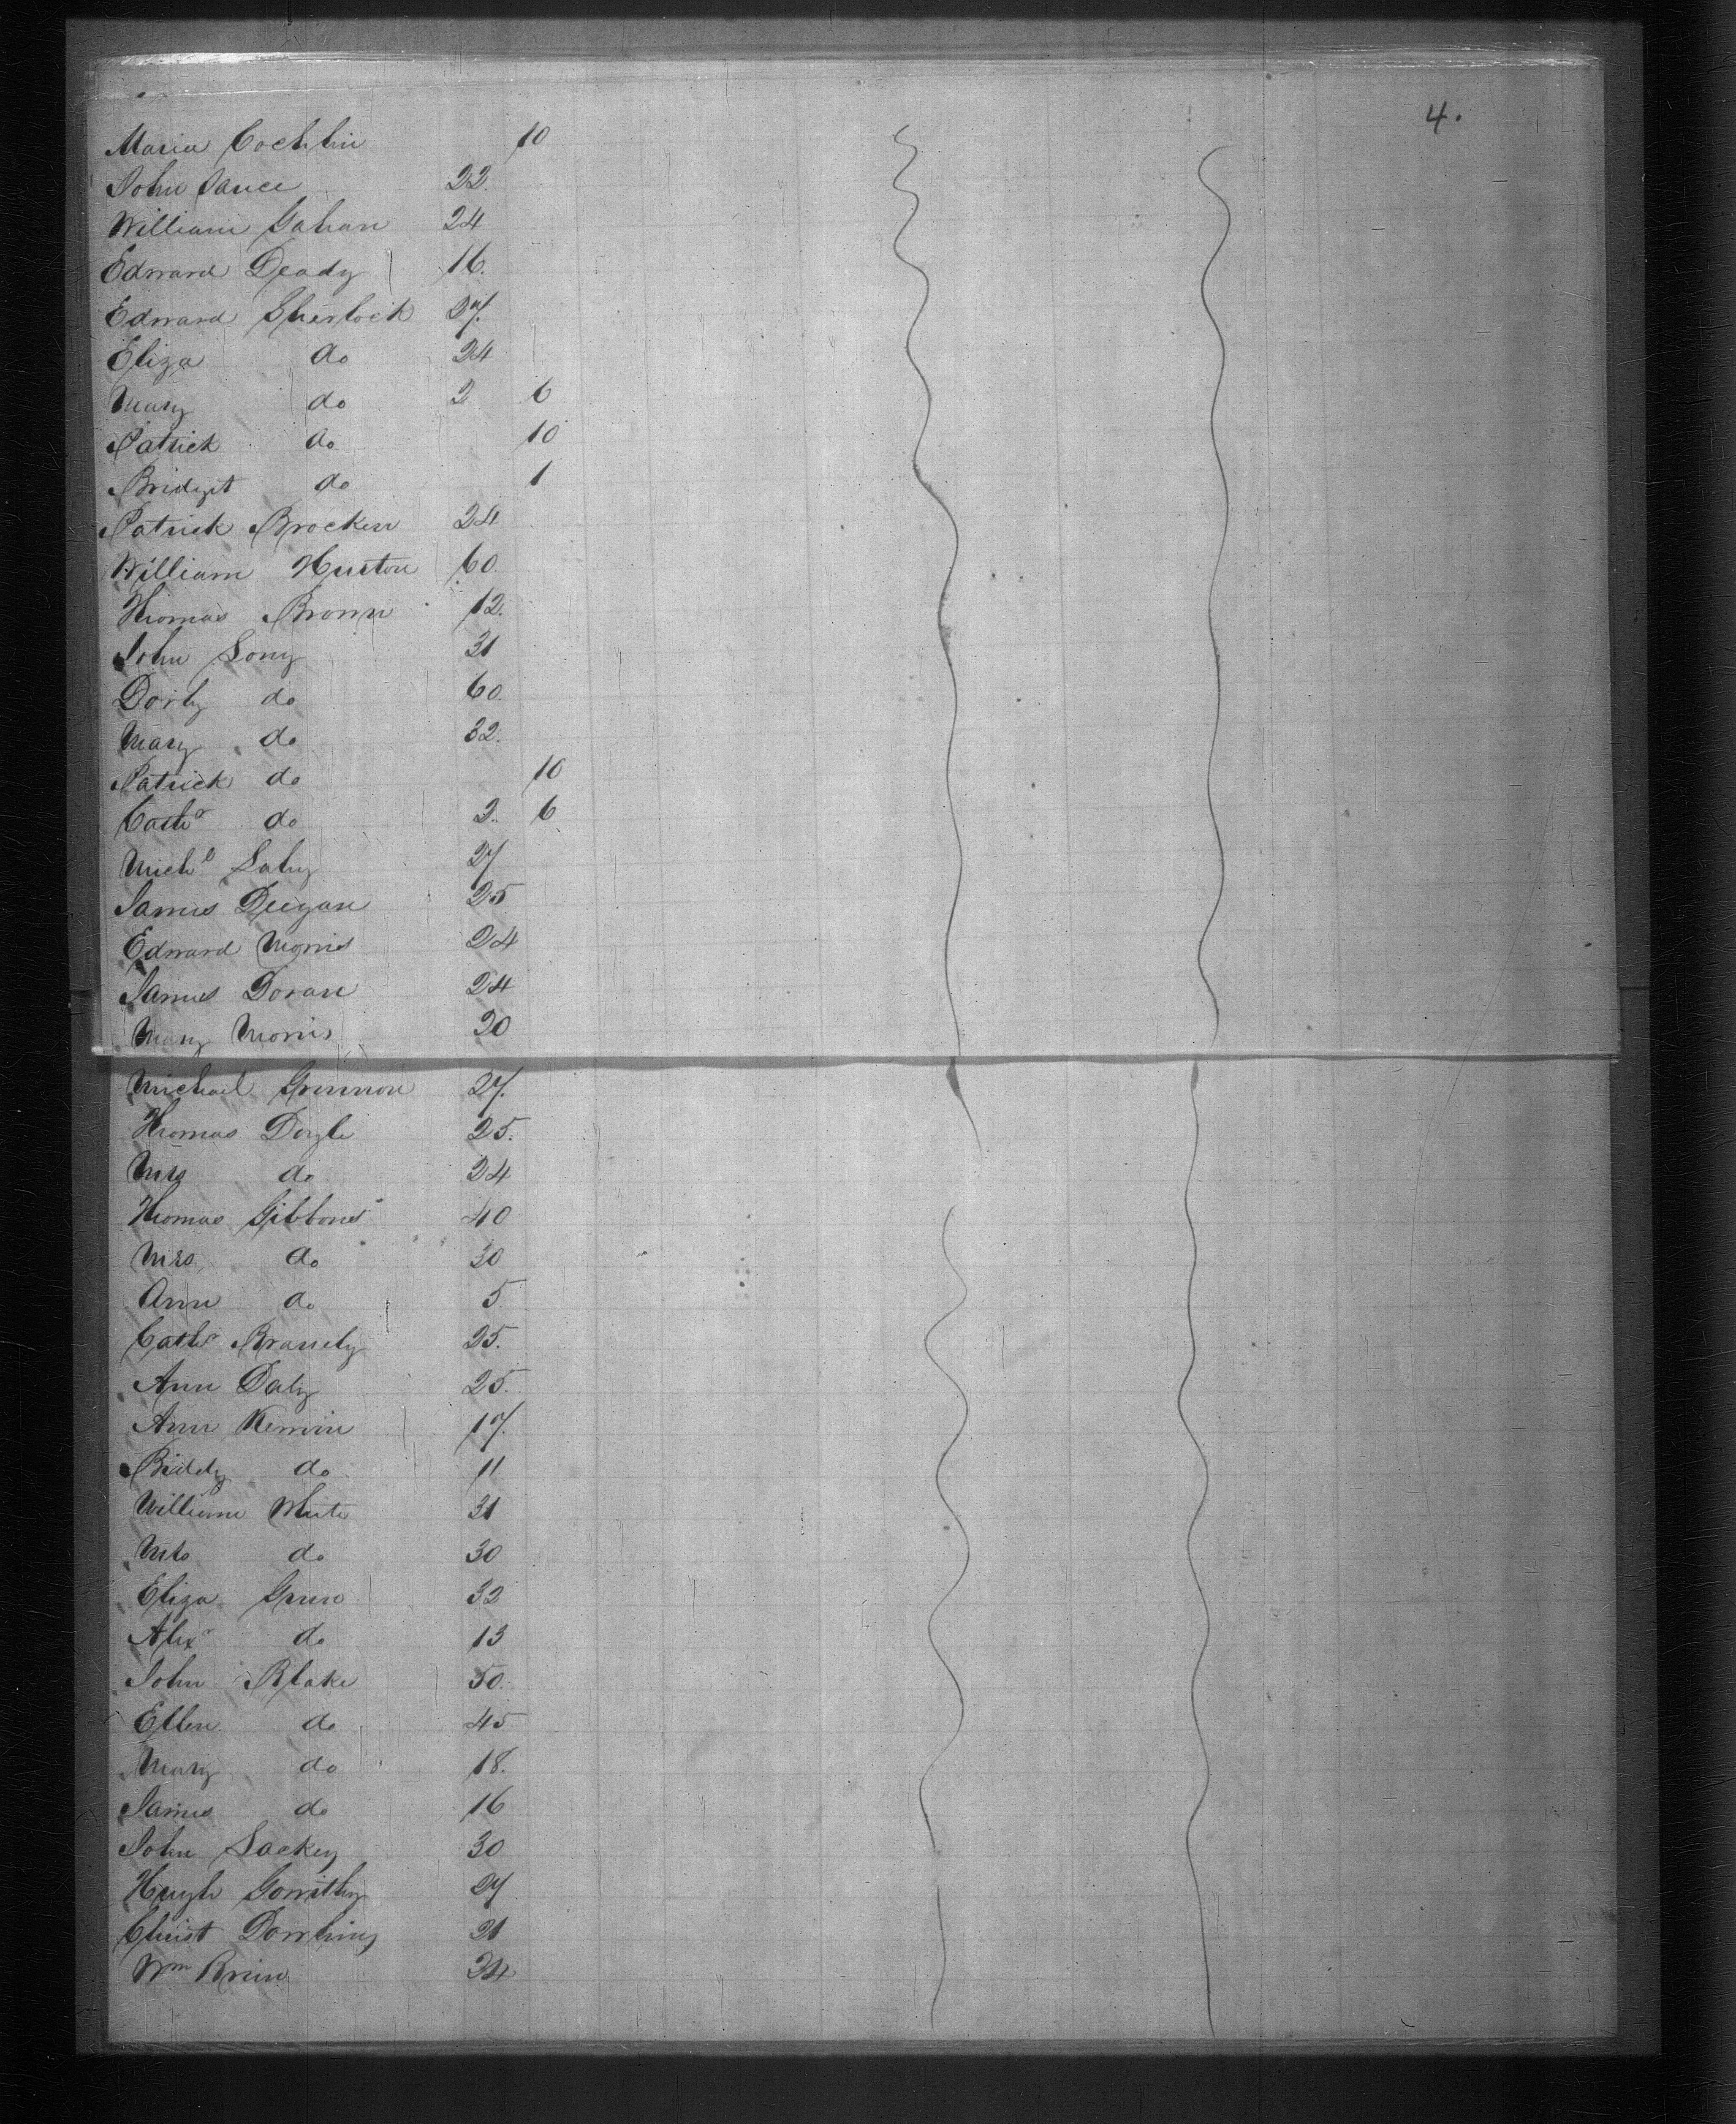 4.
Maria Cochlin 10
John Vance 22.
William Gahan 24
Edward Deady 16.
Edward Sherlock 27.
Eliza do 24
Mary do 2 6
Patrick do 10
Bridget do 1
Patrick Brocken 24
William Huston 60.
Thomas Brown 12.
John Long 31
Dorby do 60.
Mary do 32.
Patrick do 10
Cathe do 2. 6
Michl Lahy 27
James Deegan 25
Edward Morris 24
James Doran 24
Mary Morris 20
Michael Grennon 27.
Thomas Doyle 25.
Mrs do 24
Thomas Gibbons 40
Mrs do 30
Ann do 5
Cathe 25.
Ann Daly 25.
Ann Kerwin 17.
Biddy do 11
William White 31
Mrs do 30
Eliza Green 32
Alexr do 13
John Blake 50.
Ellen do 45
Mary do 18.
James do 16
John Lackey 30
Hugh 27
Christ Dowling 21
Wm Brien 24